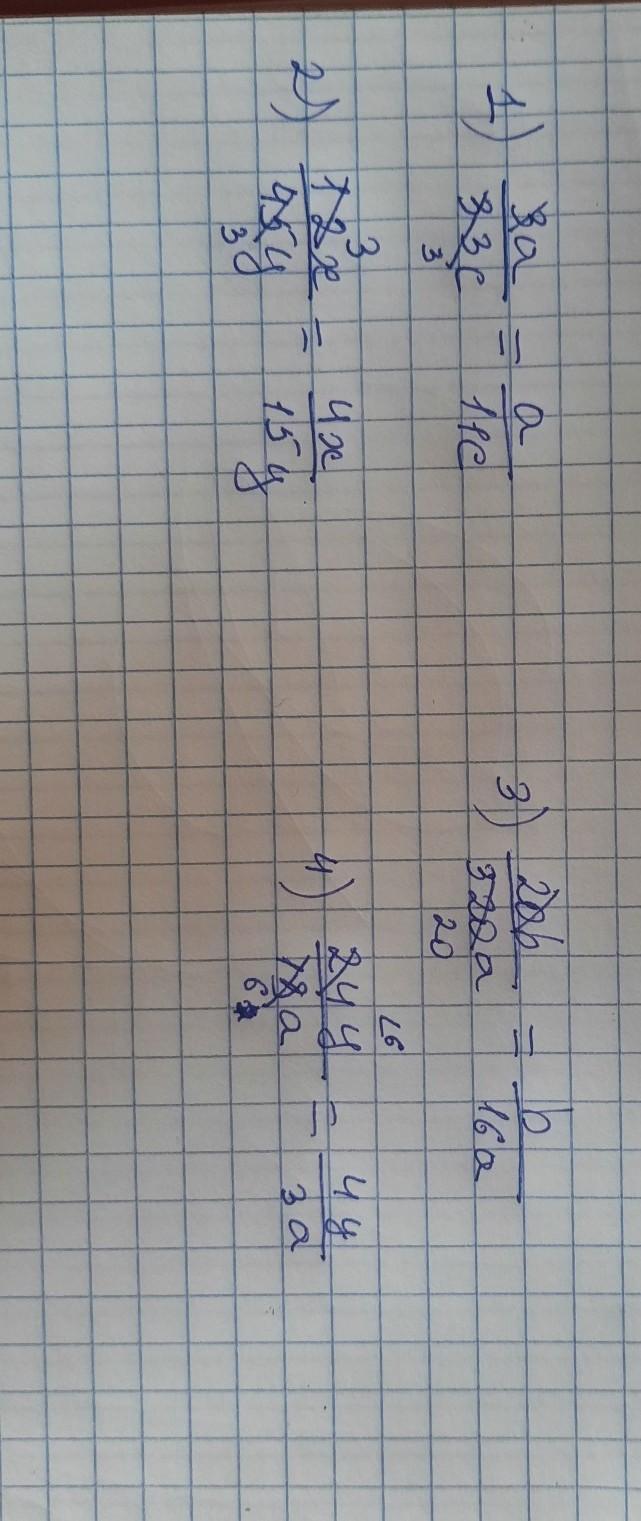 1) 3a / 33c = a / 11c
3
2) 12x / 45y = 4x / 15y
3
3
3) 20b / 320a = b / 16a
20
4) 24y / 18a = 4y / 3a
6
6